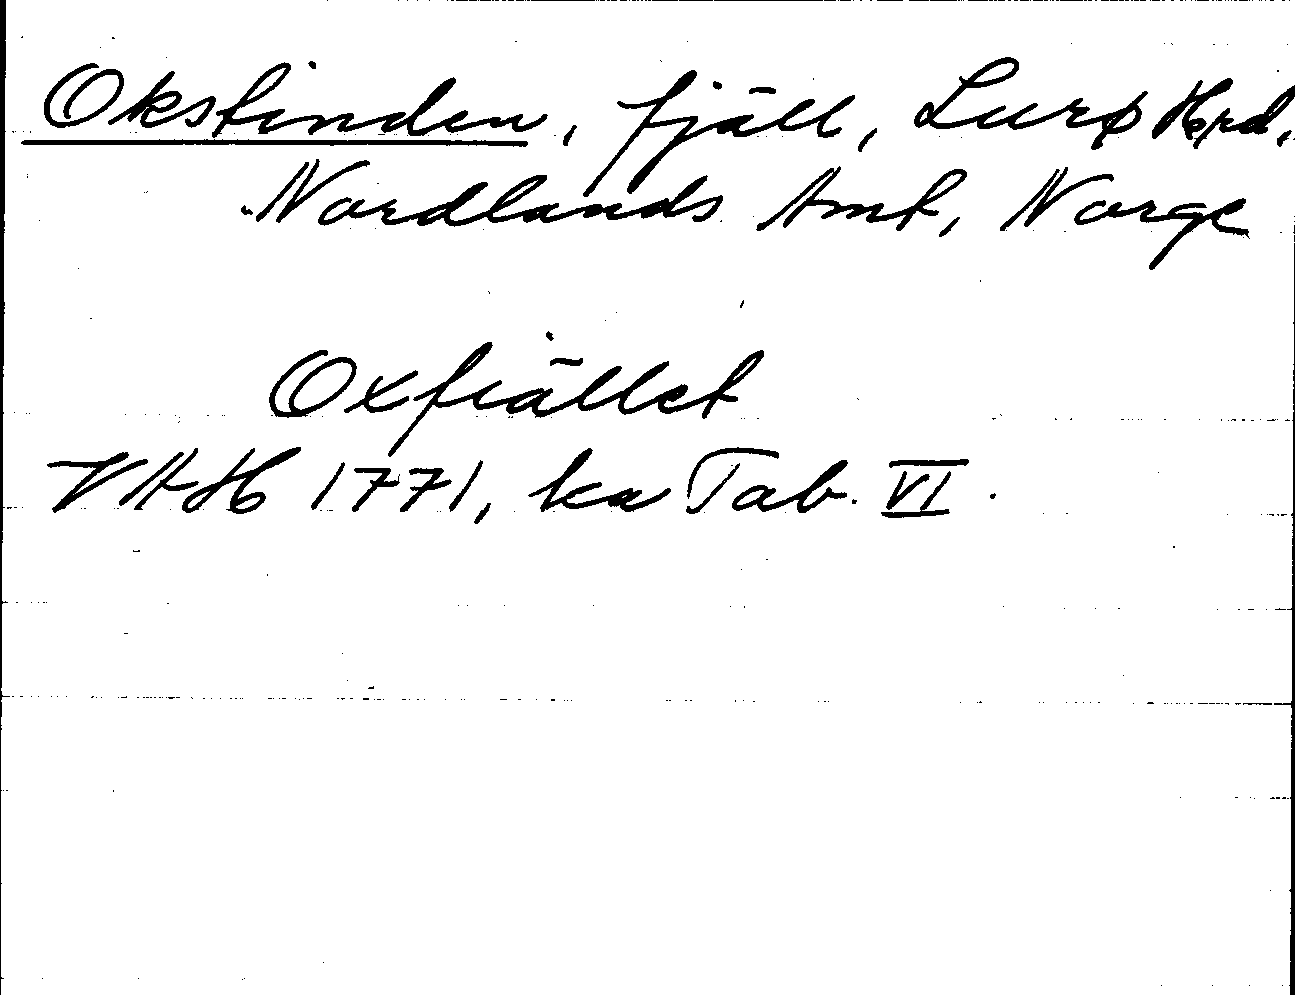 Okstinden, fjäll, Lurø Hrd,
Nordlands Amt, Norge
Oxfiället
VAH 1771, ka Tab. VI.